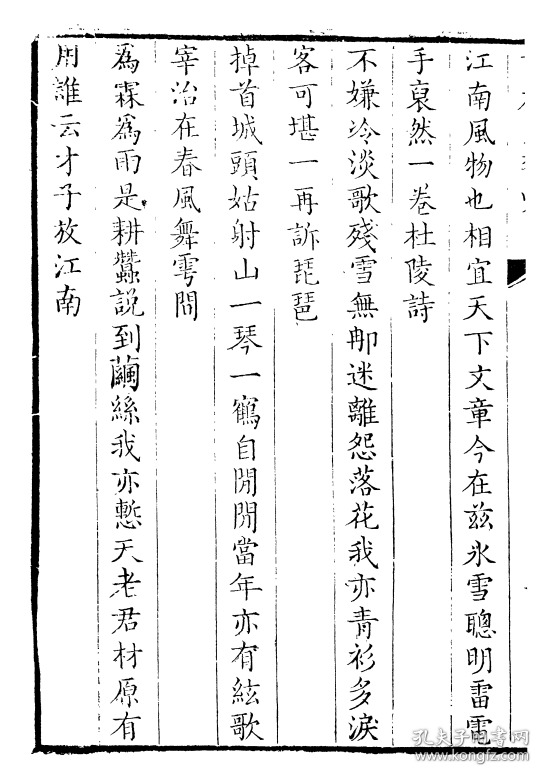 江南風物也相宜天下文章今在茲氷雪聰明雷電
手裒然一卷杜陵詩
不嫌冷淡歌殘雪無那迷離怨落花我亦青衫多淚
客可堪一再訴琵琶
掉首城頭姑射山一琴一鶴自閒閒當年亦有絃歌
宰治在春風舞雩間
為霖為雨是耕蠶說到繭絲我亦慙天老君材原有
用誰云才子放江南
孔夫子旧书网
www.kongfz.com